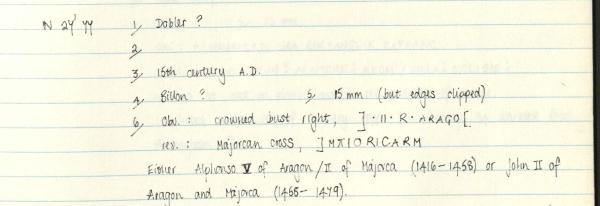 N 24' 77 1, Dobler ?
2,
3, 15th century A.D.
4, Billon ? 5, 15 mm (but edges clipped)
6, Obv. : crowned bust right, ] · II · R · ARAGO [
rev. : Majorcan cross, ] MAIORICARM
Either Alphonso V of Aragon / II of Majorca (1416-1458) or John II of
Aragon and Majorca (1455-1479).